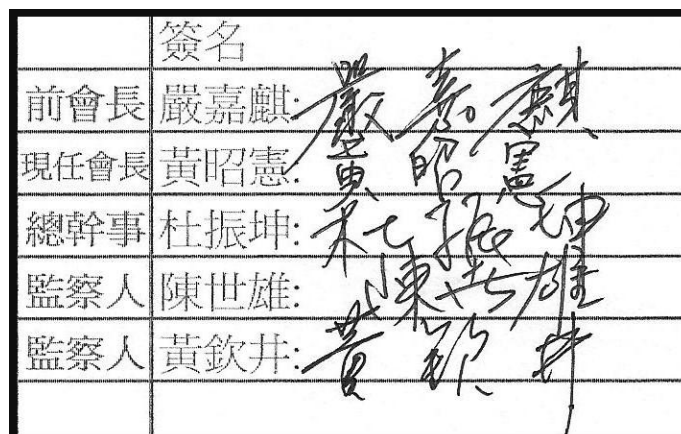 簽名
前會長 嚴嘉麒: 嚴嘉麒
現任會長 黃昭憲: 黃昭憲
總幹事 杜振坤: 杜振坤
監察人 陳世雄: 陳世雄
監察人 黃欽井: 黃欽井